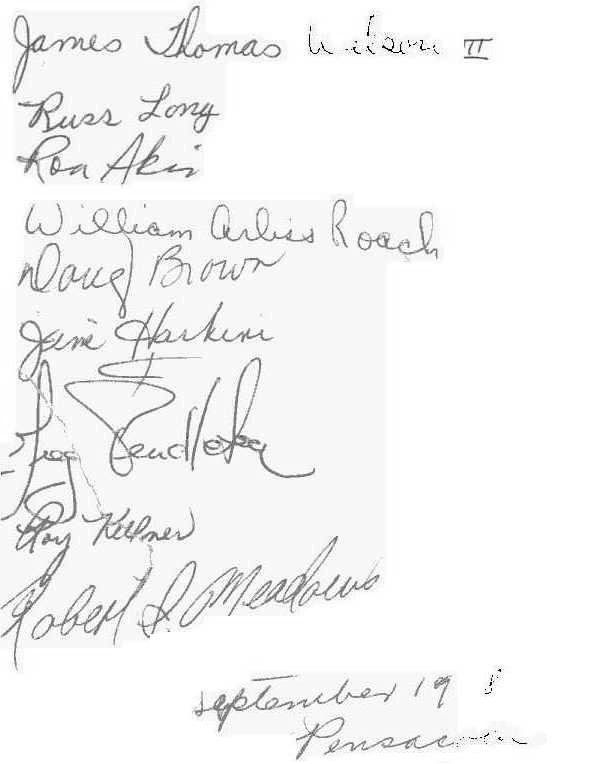 James Thomas Wilson II
Russ Long
Ron Akin
William Arliss Roach
Doug Brown
Jim Harkins
Greg Pendleton
Roy
Robert S. Meadows
september 19
Pensacola